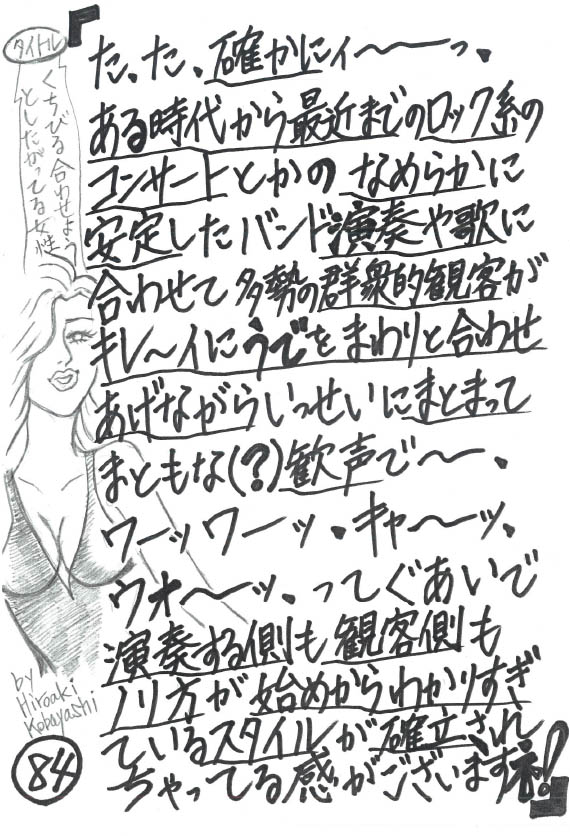 タイトル
くちびる合わせよう
としたがってる女性
『
た、た、確かにィ〜〜っ、
ある時代から最近までのロック系の
コンサートとかのなめらかに
安定したバンド演奏や歌に
合わせて多勢の群衆的観客が
キレ〜イにうでをまわりと合わせ
あげながらいっせいにまとまって
まともな(?)歓声で〜、
ワーッワーッ・キャ〜ッ、
ウオ〜ッ、ってぐあいで
演奏する側も観客側も
ノリ方が始めからわかりすぎ
ているスタイルが確立され
ちゃってる感がございますネ!』
by
Hiroaki
Kobayashi
84